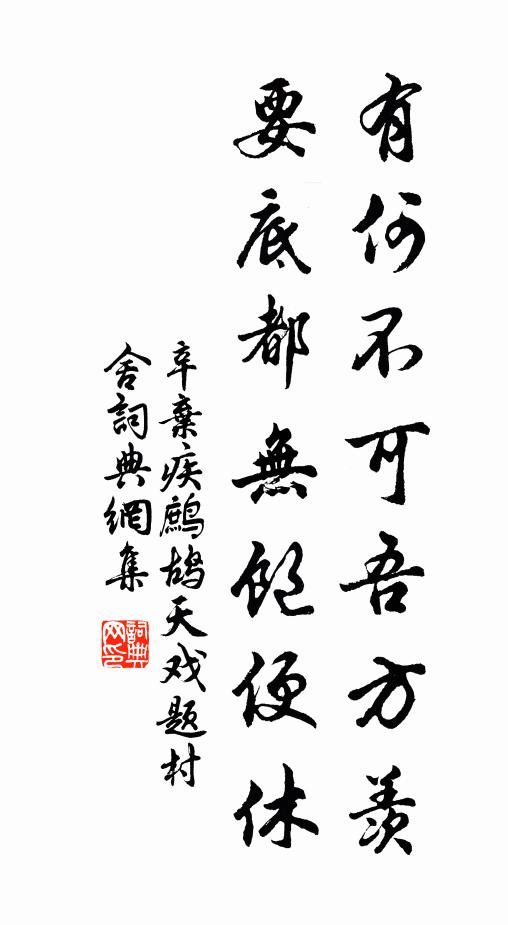 有何不可吾方羡
要底都無飽便休
辛棄疾鷓鴣天戏题村
舍詞典網集
詞典网印